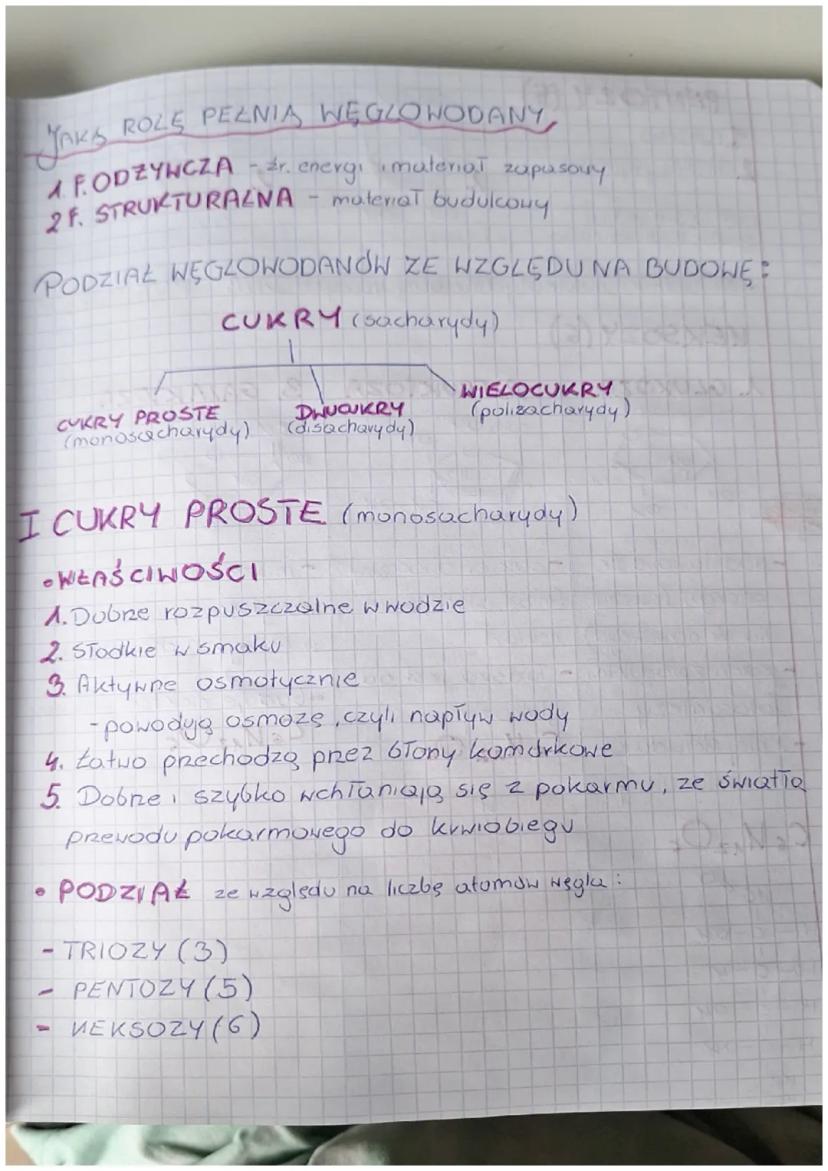 JAKĄ ROLĘ PEŁNIĄ WĘGLOWODANY
1 F. ODŻYWCZA - źr. energi i materiał zapasowy
2 F. STRUKTURALNA - materiał budulcowy
PODZIAŁ WĘGLOWODANÓW ZE WZGLĘDU NA BUDOWĘ:
CUKRY (sacharydy)
CUKRY PROSTE DWUCUKRY WIELOCUKRY
(monosacharydy) (disacharydy) (polizacharydy)
I CUKRY PROSTE (monosacharydy)
• WŁAŚCIWOŚCI
1. Dobrze rozpuszczalne w wodzie
2. Słodkie w smaku
3. Aktywne osmotycznie
- powodują osmozę, czyli napływ wody
4. Łatwo przechodzą przez błony komórkowe
5. Dobrze i szybko wchłaniają się z pokarmu, ze światła
przewodu pokarmowego do krwiobiegu
• PODZIAŁ ze względu na liczbę atomów węgla:
- TRIOZY (3)
- PENTOZY (5)
- HEKSOZY (6)